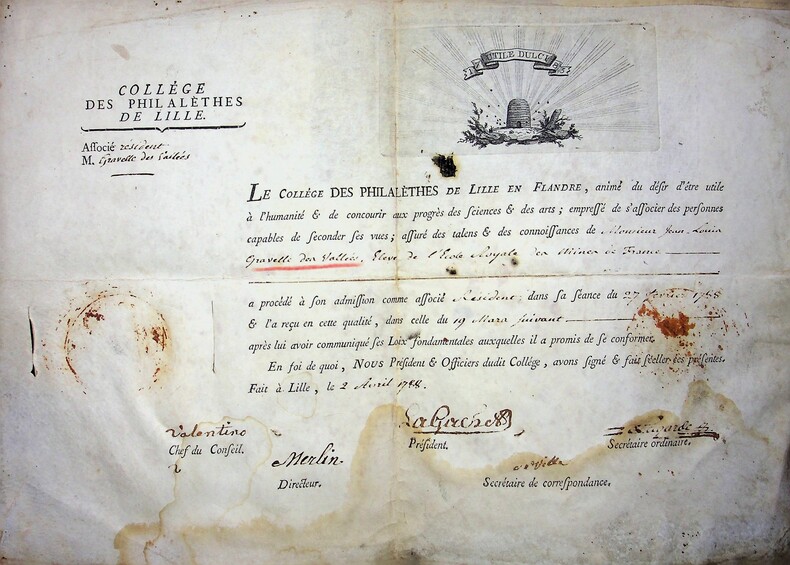 UTILE DULCI
COLLÉGE
DES PHILALÈTHES
DE LILLE.
Aſſocié résident
M. Gravelle des Vallées
LE COLLÉGE DES PHILALÈTHES DE LILLE EN FLANDRE, animé du déſir d'être utile
à l'humanité & de concourir aux progrès des ſciences & des arts ; empreſſé de s'aſſocier des perſonnes
capables de ſeconder ſes vues ; aſſuré des talens & des connoiſſances de Monsieur Jean-Louis
Gravelle des Vallées, Eleve de l'Ecole Royale des Mines de France
a procédé à ſon admiſſion comme aſſocié Résident, dans ſa séance du 27 1788
& l'a reçu en cette qualité, dans celle du 19 Mars suivant
après lui avoir communiqué ſes Loix fondamentales auxquelles il a promis de ſe conformer.
En foi de quoi, NOUS Préſident & Officiers dudit Collége, avons ſigné & fait ſcéller ces préſentes.
Fait à Lille, le 2 Avril 1788.
Valentino
Chef du Conſeil.
Merlin
Directeur.
Préſident.
Secrétaire de correſpondance.
Secrétaire ordinaire.